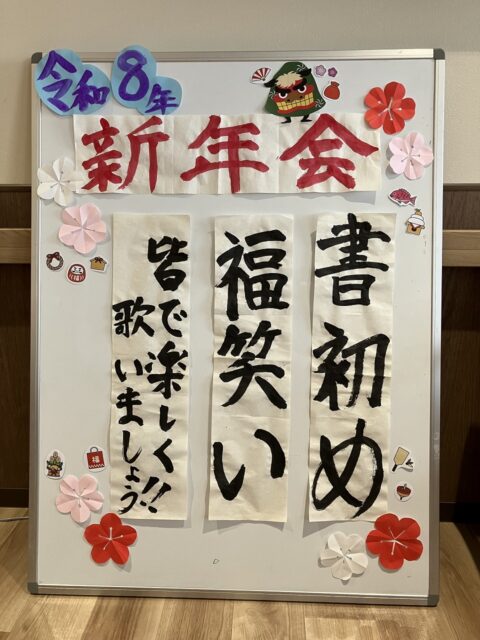 令和8年
新年会
書初め
福笑い
皆で楽しく
歌いましょう!!
福